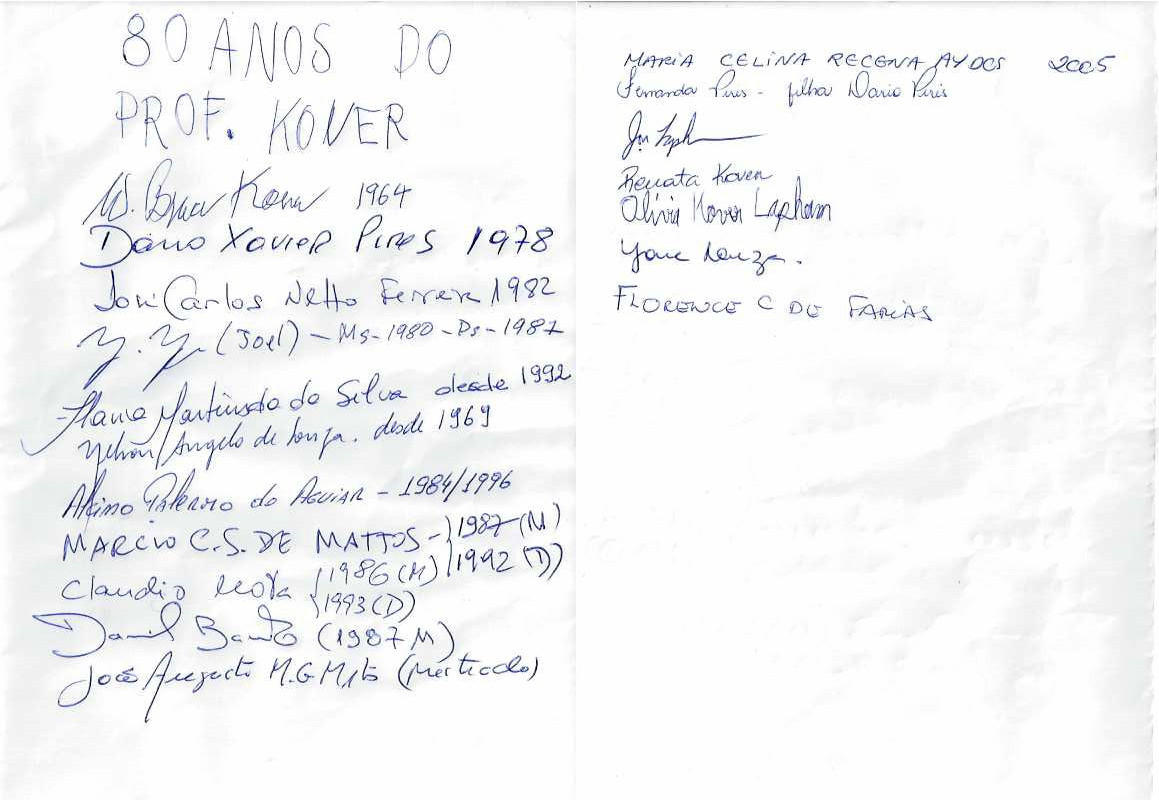 80 ANOS DO
PROF. KOVER
W. Bruce Kover 1964
Dario Xavier Pires 1978
José Carlos Netto Ferreira 1982
(Joel) - Ms-1980 - Ds-1987
Flavia Martins da Silva desde 1992
Nelson Angelo de Souza. desde 1969
Alcino Palermo de Aguiar - 1984/1996
MARCIO C.S. DE MATTOS - 1987 (M)
1992 (D)
Claudio Mota 1986 (M)
1993 (D)
Daniel (1987 M)
José Augusto M.G (Mestrado)
MARIA CELINA RECENA AYDOS 2005
Fernanda Pires - filha Dario Pires
Renata Kover
Olivia Kover Lapham
Yone Souza.
FLORENCE C DE FARIAS